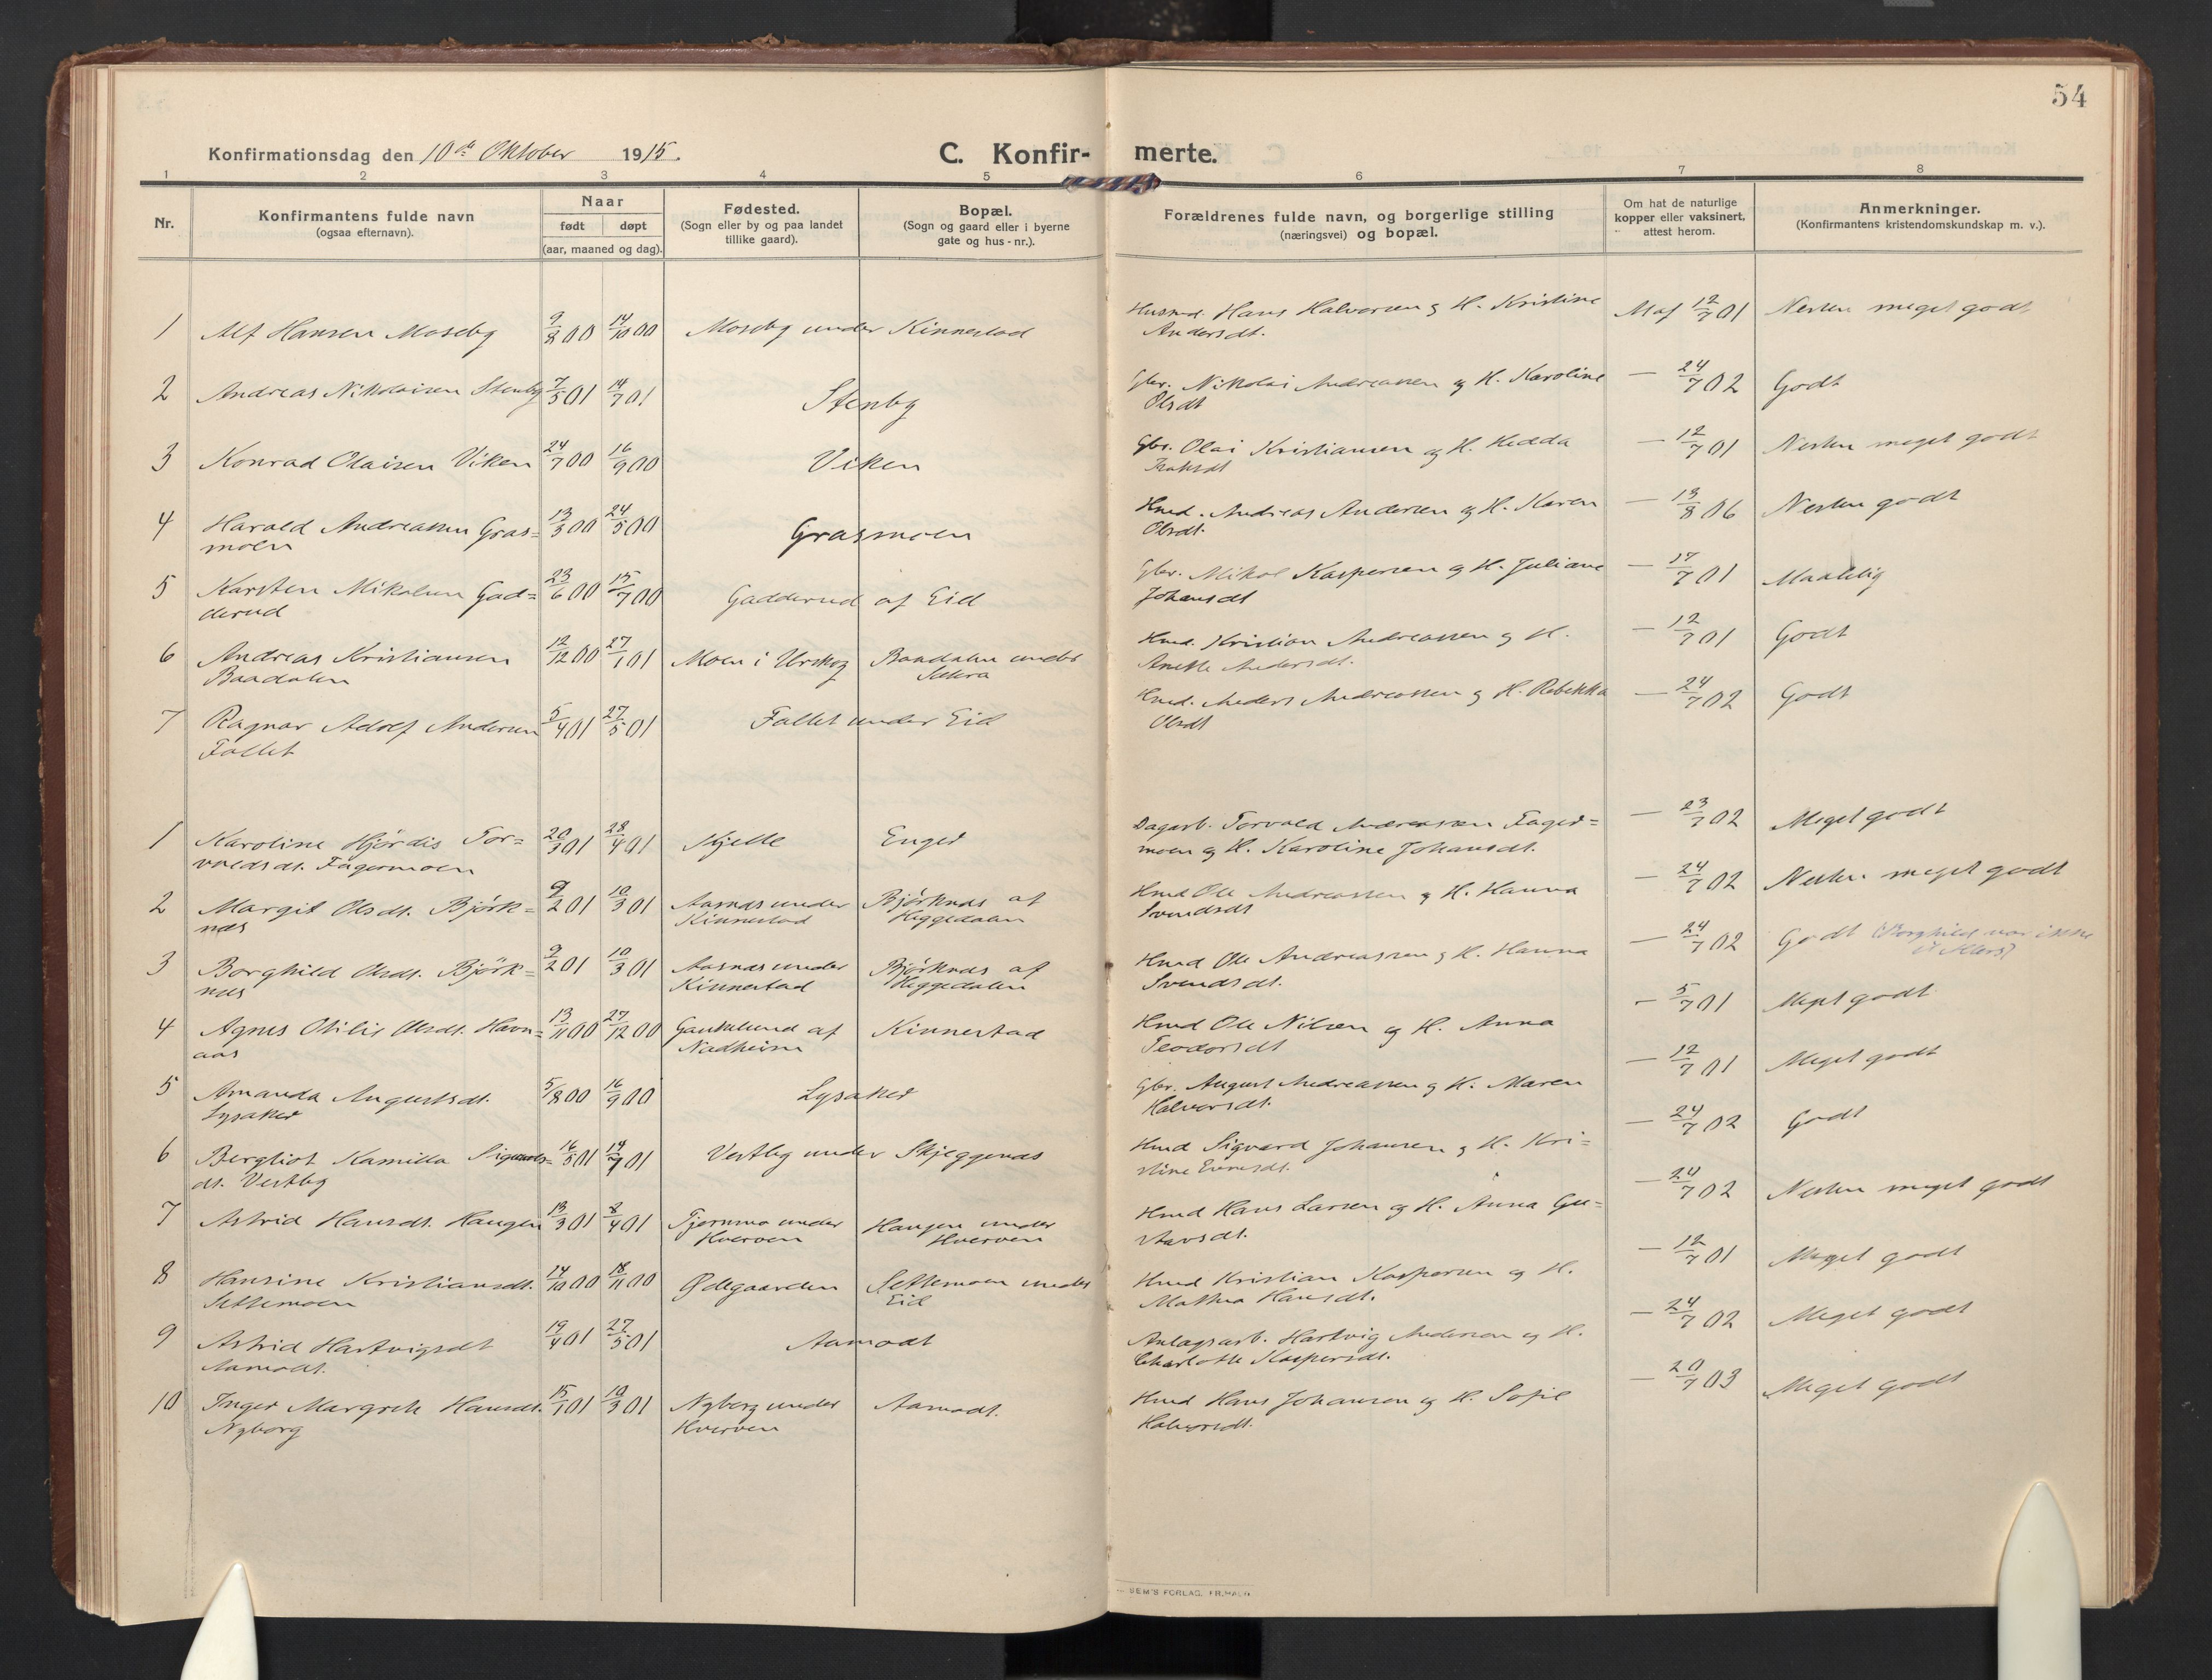 54
Konfirmationsdag den 10de Oktober 1915.
C. Konfir- merte.
1 2 3 4 5 6 7 8
Nr.
Konfirmantens fulde navn
(ogsaa efternavn).
Naar
født døpt
(aar, maaned og dag).
Fødested.
(Sogn eller by og paa landet
tillike gaard).
Bopæl.
(Sogn og gaard eller i byerne
gate og hus-nr.).
Forældrenes fulde navn, og borgerlige stilling
(næringsvei) og bopæl.
Om hat de naturlige
kopper eller vaksinert,
attest herom.
Anmerkninger.
(Konfirmantens kristendomskundskap m. v.).
1 Alf Hansen Moseby 9/8 00 14/10 00 Moseby under Kinnestad Husmd. Hans Halvorsen g H. Kristine 12/7 01 Nesten meget godt
Andersdt.
2 Andreas Nikolaisen Stenby 7/5 01 14/7 01 Stenby Gbr. Nikolai Andreassen og H. Karoline — 24/7 02 Godt
Olsdt
3 Konrad Olaisen Viken 24/7 00 16/9 00 Viken Gbr. Olai Kristiansen og H. Hedda — 12/7 01 Nesten meget godt
4 Harald Andreassen Gras= 13/3 00 24/5 00 Grasmoen Hmd. Andreas Andersen og H. Karen — 13/8 06 Nesten godt
moen Olsdt.
5 Karsten Mikalsen Gad= 23/6 00 15/7 00 Gadderud af Eid Gbr. Mikal Kaspersen og H. Juliane — 17/7 01 Maadelig
derud Johansdt
6 Andreas Kristiansen 12/12 00 27/1 01 Moen i Urskog Baadalen under Hmd. Kristian Andreassen g H. — 12/7 01 Godt
Baadalen Anette Andersdt.
7 Ragnar Adolf Andersen 5/4 01 27/5 01 Fallet under Eid Hmd. Anders Andreassen g H. Rebekka — 24/7 02 Godt
Fallet Olsdt
1 Karoline Hjørdis Tor= 20/3 01 28/4 01 Kjelle Enger Dagarb. Torvald Andreassen Fager= — 23/7 02 Meget godt
valdsdt. Fagermoen moen og H. Karoline Johansdt.
2 Margit Olsdt. Bjørk= 9/2 01 10/3 01 Aasnæs under Bjørknæs af Hmd Ole Andreassen g H. Hanna — 24/7 02 Nesten meget godt
næs Kinnestad Heggedalen Svendsdt
3 Borghild Olsdt. Bjørk= 9/2 01 10/3 01 Aasnæs under Bjørknæs af Hmd Ole Andreassen g H. Hanna — 24/7 02 Godt (Borghild var ikke
næs Kinnestad Heggedalen Svendsdt.
4 Agnes Otilie Olsdt. Havn= 13/11 00 27/12 00 Gaukelund af Kinnestad Hmd Ole Nilsen og H. Anna — 5/7 01 Meget godt
aas Nadheim Teodorsdt
5 Amanda Augustsdt. 5/8 00 16/9 00 Lysaker Gbr. August Andreassen g H. Maren — 12/7 01 Meget godt
Lysaker Halvorsdt.
6 Bergliot Kamilla 16/5 01 14/7 01 Vestby under Skjeggenæs Hmd Sigvard Johansen g H. Kri= — 24/7 02 Godt
dt. Vestby stine Evensdt.
7 Astrid Hansdt. Haugen 13/3 01 8/4 01 Tjernmo under Haugen under Hmd Hans Larsen og H. Anna Gu= — 24/7 02 Nesten meget godt
Hverven Hverven stavsdt.
8 Hansine Kristiansdt. 14/10 00 18/11 00 Ødegaarden Settemoen under Hmd Kristian Kaspersen og H. — 12/7 01 Meget godt
Settemoen Eid Mathea Hansdt.
9 Astrid Hartvigsdt 19/4 01 27/5 01 Aamodt Anlægsarb. Hartvig Andersen og H. — 24/7 02 Meget godt
Aamodt. Charlotte Kaspersdt.
10 Inger Margrete Hansdt. 15/1 01 10/3 01 Nyborg under Aamodt. Hmd Hans Johansen og H. Sofie — 20/7 03 Meget godt
Nyborg Hverven Halvorsdt.
SEM'S FORLAG, FR.HALD